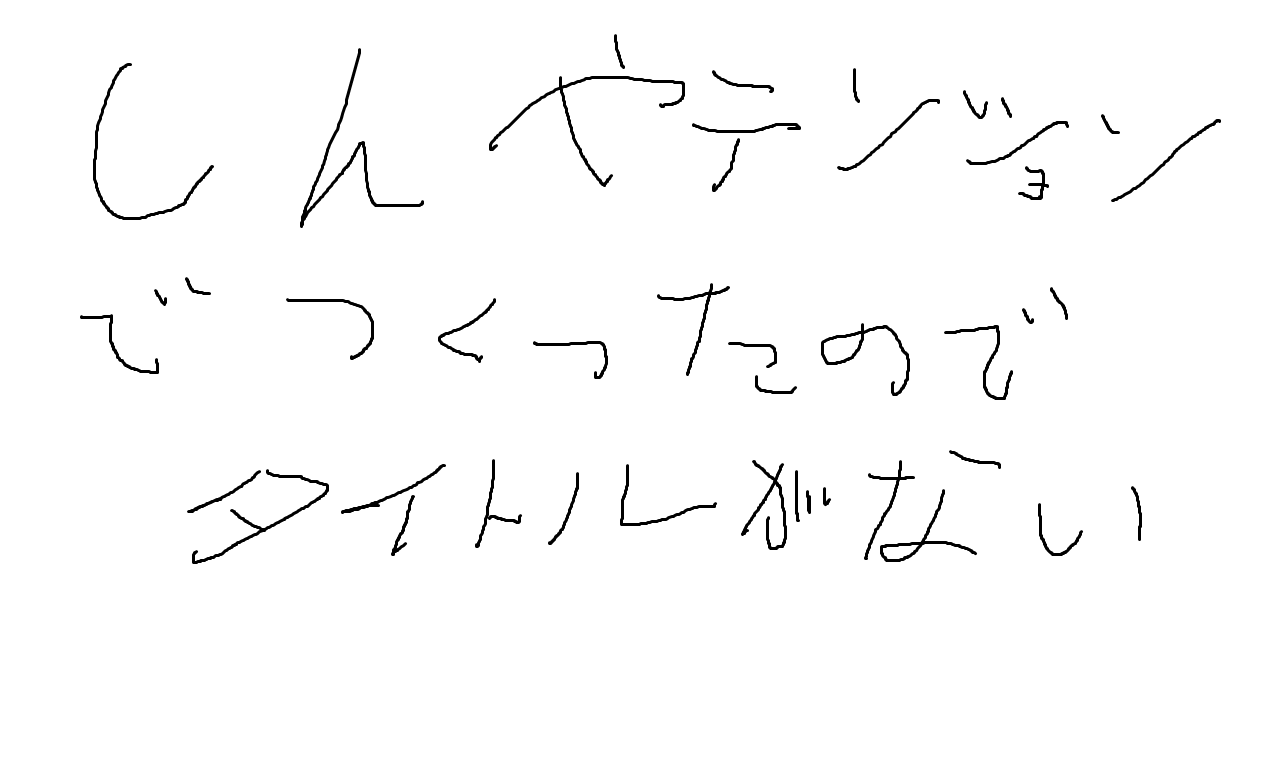 しんやテンション
でつくったので
タイトルがない